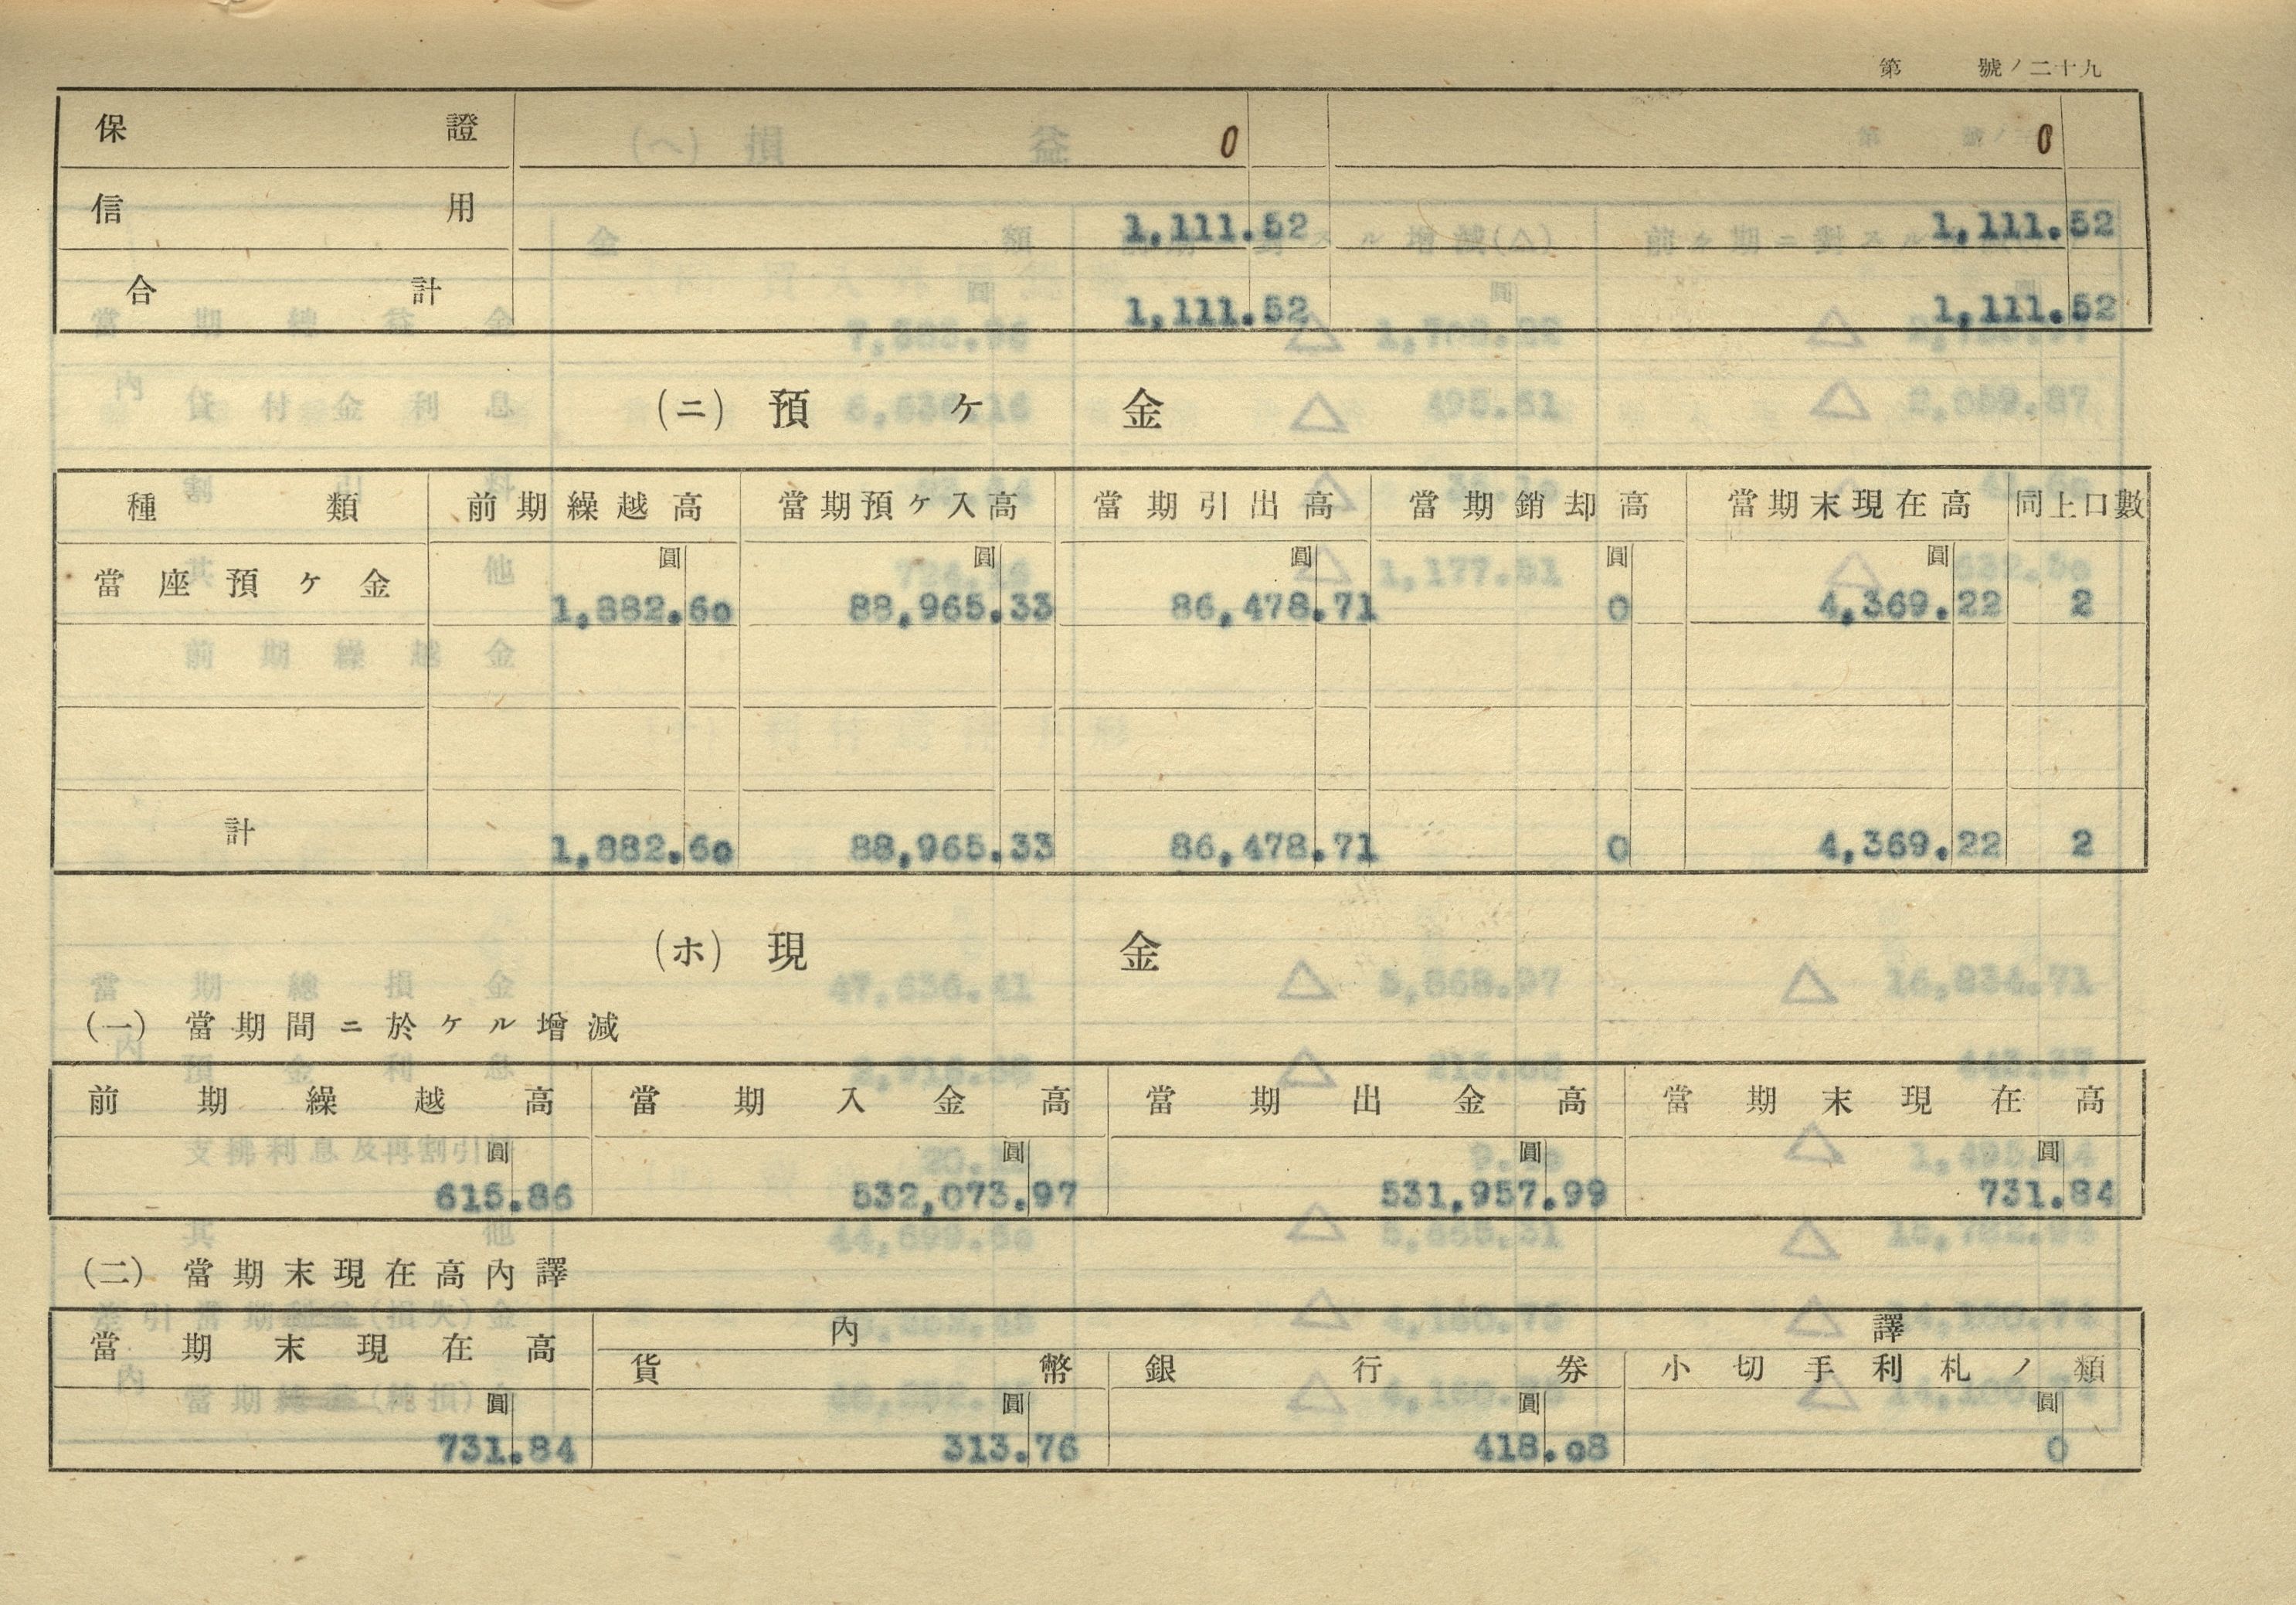 第 號ノ二十九
保證 0 0
信用 1,111.52 1,111.52
合計 1,111.52 1,111.52
(ニ) 預ケ金
種類 前期繰越高 當期預ケ入高 當期引出高 當期銷却高 當期末現在高 同上口數
圓 圓 圓 圓 圓
當座預ケ金 1,882.60 88,965.33 86,478.71 0 4,369.22 2
計 1,882.60 88,965.33 86,478.71 0 4,369.22 2
(ホ) 現金
(一) 當期間ニ於ケル增減
前期繰越高 當期入金高 當期出金高 當期末現在高
圓 圓 圓 圓
615.86 532,073.97 531,957.99 731.84
(二) 當期末現在高內譯
當期末現在高 內譯
貨幣 銀行券 小切手利札ノ類
圓 圓 圓 圓
731.84 313.76 418.08 0